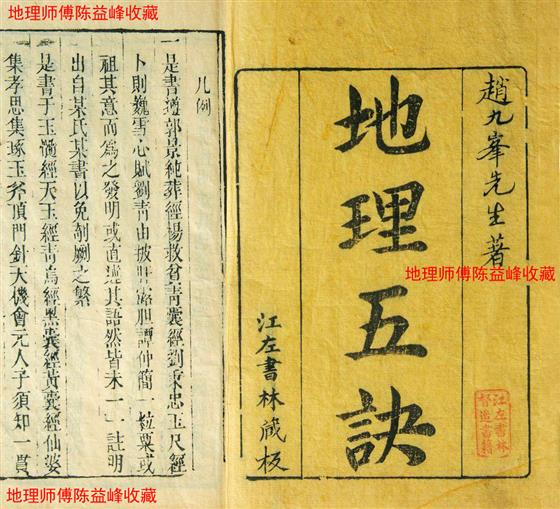 地理师傅陈益峰收藏
地理师傅陈益峰收藏
趙九峯先生著
地理五訣
江左書林藏板
江左書林
督造書籍
地理师傅陈益峰收藏
凡例
一是書遵郭景純葬經楊救貧青囊經劉秉忠玉尺經
卜則巍雪心賦劉青田披肝露胆譚仲簡一粒粟或
祖其意而為之發明或直述其語然皆未一一註明
出自某氏某書以免剞劂之繁
是書于玉髓經天玉經青烏經黑囊經黃囊經仙婆
集孝思集琢玉斧頂門針大機會元人子須知一貫
地理师傅陈益峰收藏